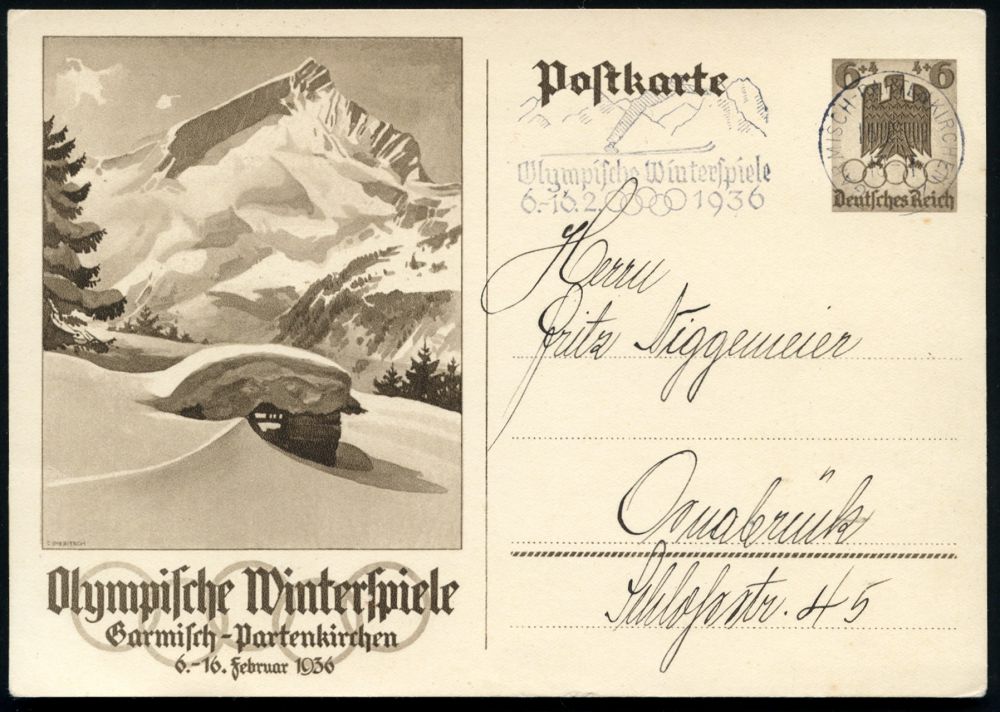 Olympische Winterspiele
Garmisch-Partenkirchen
6.-16. Februar 1936
Postkarte
Olympische Winterspiele
6.-16.2. 1936
6+4 4+6
Deutsches Reich
Herrn
Fritz Niggemeier
Osnabrück
Schloßstr. 45